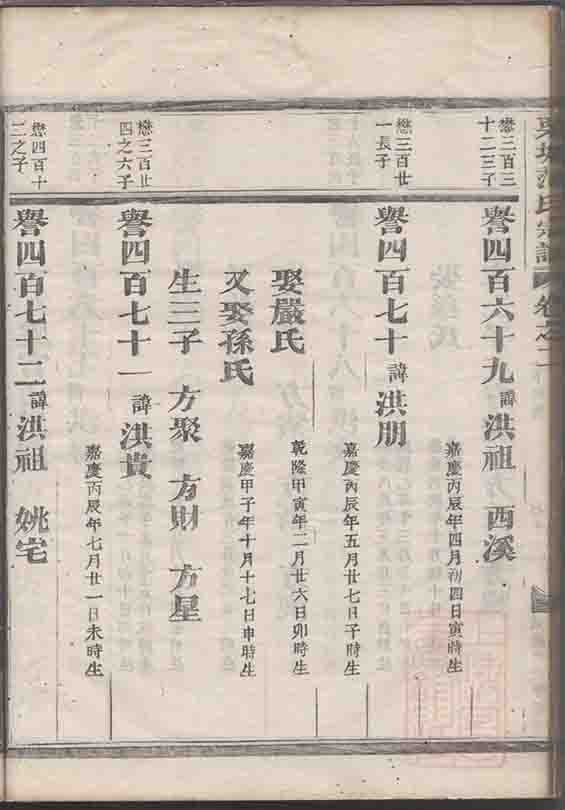 氏宗譜 卷之二
懋三百三
十二三子
譽四百六十九 諱 洪祖 西溪
嘉慶丙辰年四月初四日寅時生
懋三百廿
一長子
譽四百七十 諱 洪朋
嘉慶丙辰年五月廿七日子時生
娶嚴氏
乾隆甲寅年二月廿六日卯時生
又娶孫氏
嘉慶甲子年十月十七日申時生
生三子 方聚 方財 方星
懋三百廿
四之六子
譽四百七十一 諱 洪貴
嘉慶丙辰年七月廿一日未時生
懋四百十
二之子
譽四百七十二 諱 洪祖 姚宅